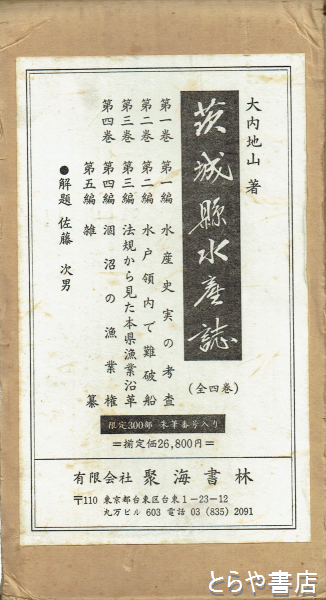 大内地山 著
茨城縣水産誌
(全四巻)
第一巻 第一編 水産史実の考査
第二巻 第二編 水戸領内で難破船
第三巻 第三編 法規から見た本県漁業沿革
第四巻 第四編 涸沼の漁業権
第五編 雑纂
●解題 佐藤次男
限定300部 朱筆番号入り
=揃定価26,800円=
有限会社 聚海書林
〒110 東京都台東区台東1-23-12
九万ビル 603 電話 03 (835) 2091
とらや書店